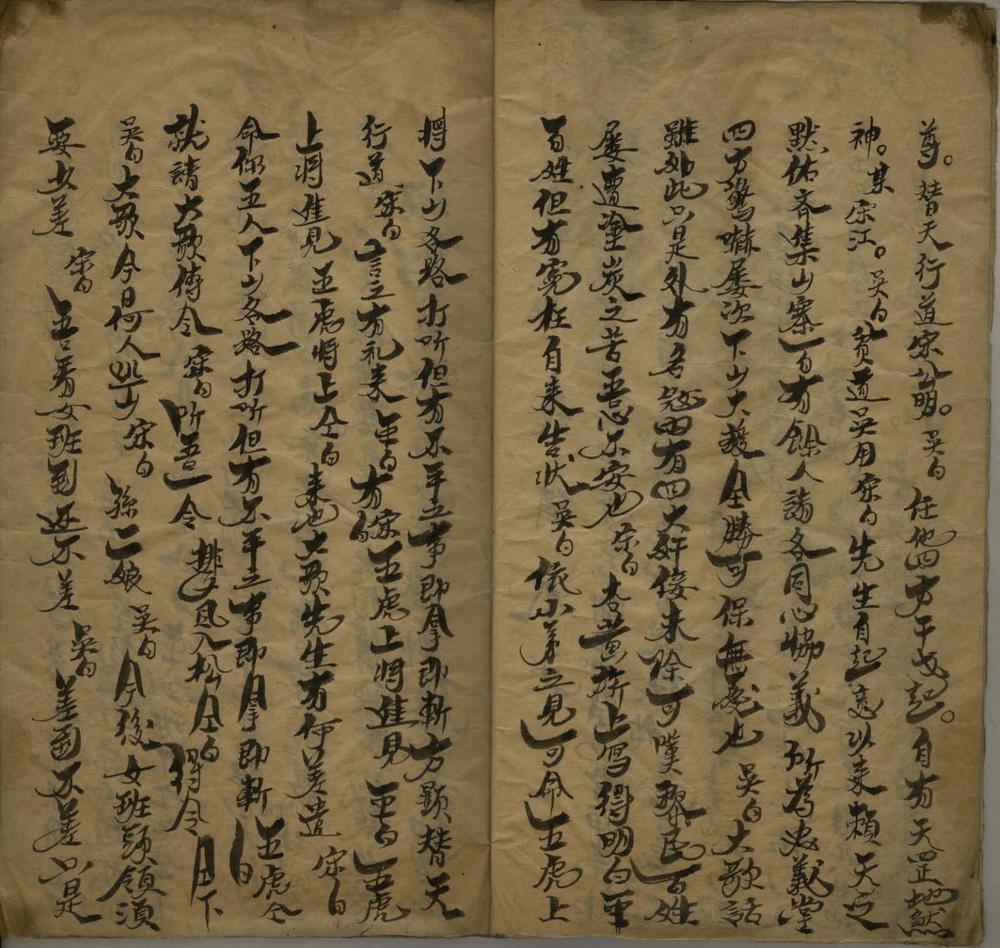 尊。替天行道宋公明。吴白任他四方干戈起。自有天罡地煞
神。某宋江。吴白贫道吴用宋白先生自起意以来賴天之
默佑齐集山寨一百有餘人請各同心協義所為忠義堂
四方驚嚇屡次下山大獲全勝可保無憂也吴白大歌話
雖如此只是外有名冠内有四大奸佞未除可嘆黎民百姓
屡遭塗炭之苦吾心不安也宋白杏黄旂上写得明白平
百姓但有寃枉自来告状吴白依小弟之見可命五虎上
將下山各路打听但有不平之事即拿即斬方顕替天
行道宋白言之有礼来手白有宋白五虎上將進見手白五虎
上將進見五虎將上仝白来也大歌先生有何差遣宋白
命你五人下山各路打听但有不平之事即拿即斬五虎仝白
就請大歌傳令宋白听吾一令排子風入松仝白得令月下
吴白大歌今日何人巡山宋白孫二娘吴白今後女班頭領須
要少差宋白吾看女班到还不差吴白差固不差只是